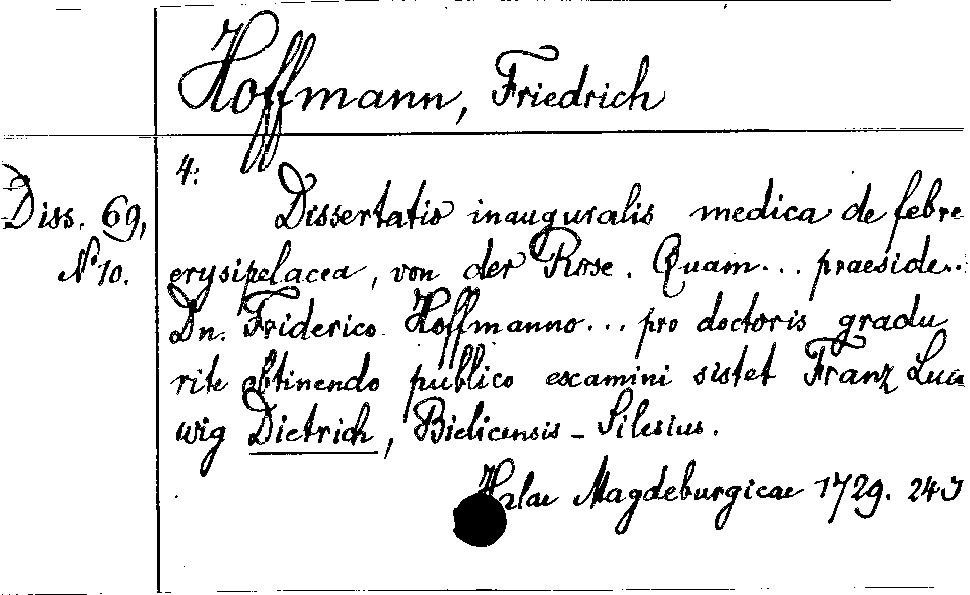 Hoffmann, Friedrich
4:
Diss. 69,
No 10.
Dissertatio inauguralis medica de febre
erysipelacea, von der Rose. Quam... praeside..
Dn. Friderico Hoffmanno... pro doctoris gradu
rite obtinendo publico examini sistet Franz Lud
wig Dietrich, Bielicensis - Silesius.
Halae Magdeburgicae 1729. 24 S